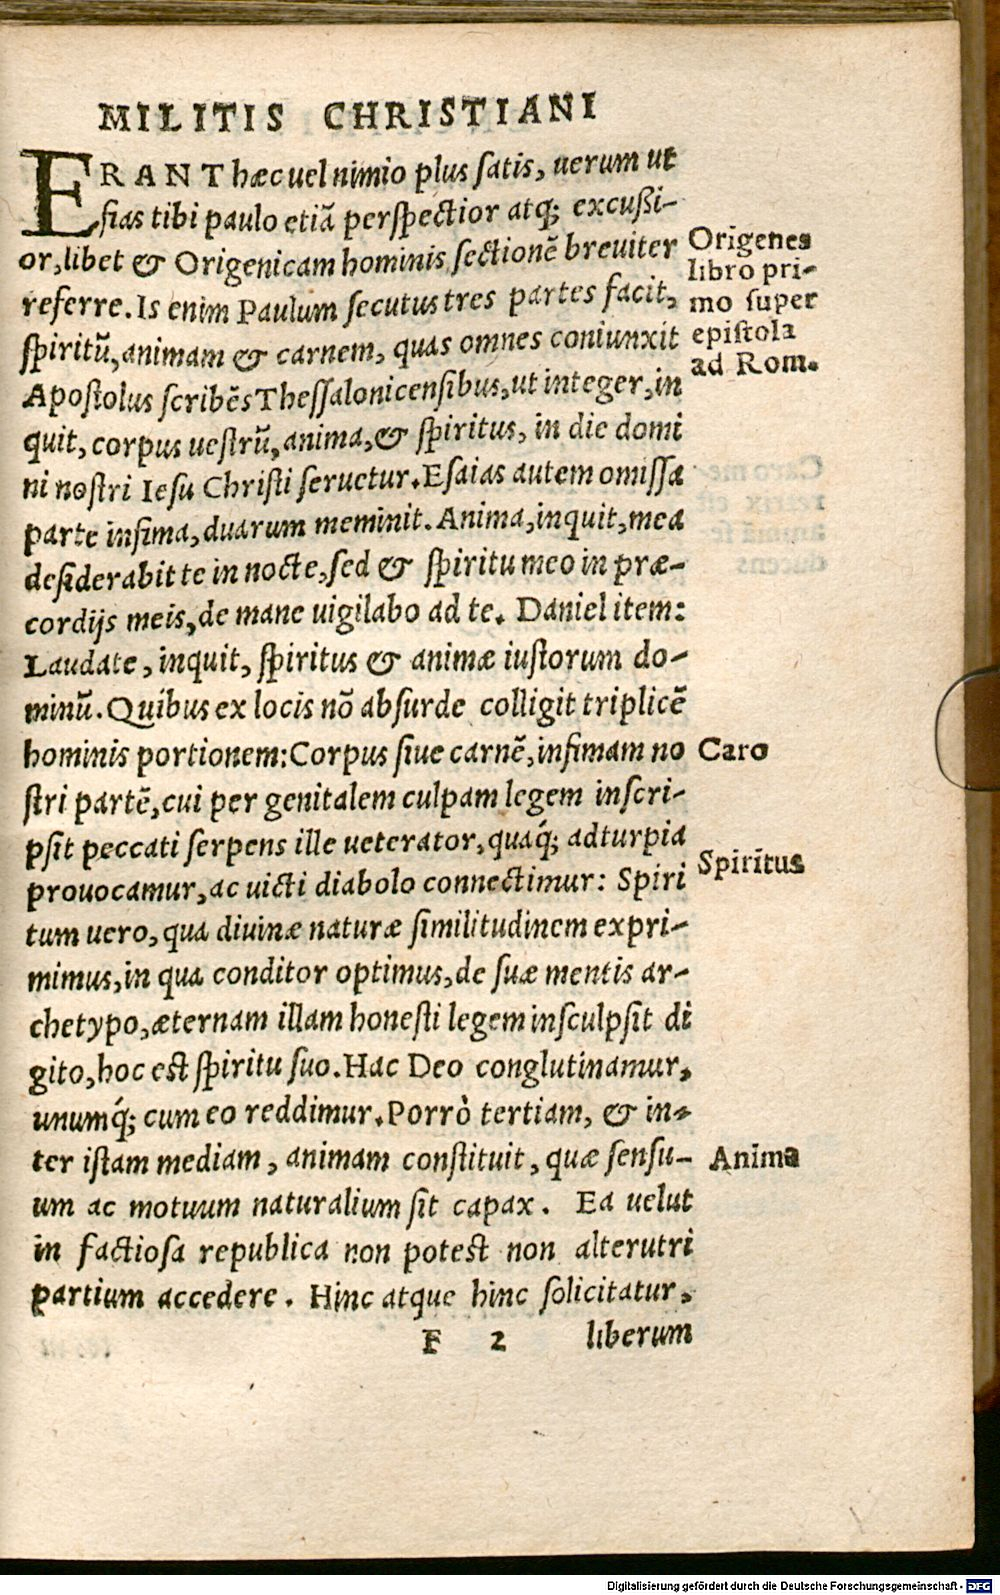 MILITIS CHRISTIANI
ERANT hæc uel nimio plus ſatis, uerum ut
ſias tibi paulo etiā perſpectior atq; excuſſi-
or, libet & Origenicam hominis ſectionē breuiter
referre. Is enim Paulum ſecutus tres partes facit,
ſpiritū, animam & carnem, quas omnes coniunxit
Apoſtolus ſcribēs Theſſalonicenſibus, ut integer, in
quit, corpus ueſtrū, anima, & ſpiritus, in die domi
ni noſtri Ieſu Chriſti ſeruetur. Eſaias autem omiſſa
parte infima, duarum meminit. Anima, inquit, mea
deſiderabit te in nocte, ſed & ſpiritu meo in præ-
cordijs meis, de mane uigilabo ad te. Daniel item:
Laudate, inquit, ſpiritus & animæ iuſtorum do-
minū. Quibus ex locis nō abſurde colligit triplicē
hominis portionem: Corpus ſiue carnē, infimam no
ſtri partē, cui per genitalem culpam legem inſcri-
pſit peccati ſerpens ille ueterator, quaq́; ad turpia
prouocamur, ac uicti diabolo connectimur: Spiri
tum uero, qua diuinæ naturæ ſimilitudinem expri-
mimus, in qua conditor optimus, de ſuæ mentis ar-
chetypo, æternam illam honeſti legem inſculpſit di
gito, hoc eſt ſpiritu ſuo. Hac Deo conglutinamur,
unumq́; cum eo reddimur. Porrò tertiam, & in-
ter iſtam mediam, animam conſtituit, quæ ſenſu-
um ac motuum naturalium ſit capax. Ea uelut
in factioſa republica non poteſt non alterutri
partium accedere. Hinc atque hinc ſolicitatur,
F 2 liberum
Origenes
libro pri-
mo ſuper
epiſtola
ad Rom.
Caro
Spiritus
Anima
Digitalisierung gefördert durch die Deutsche Forschungsgemeinschaft - DFG